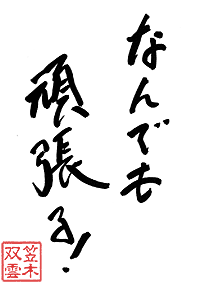 なんでも
頑張る!
笠木
双雲